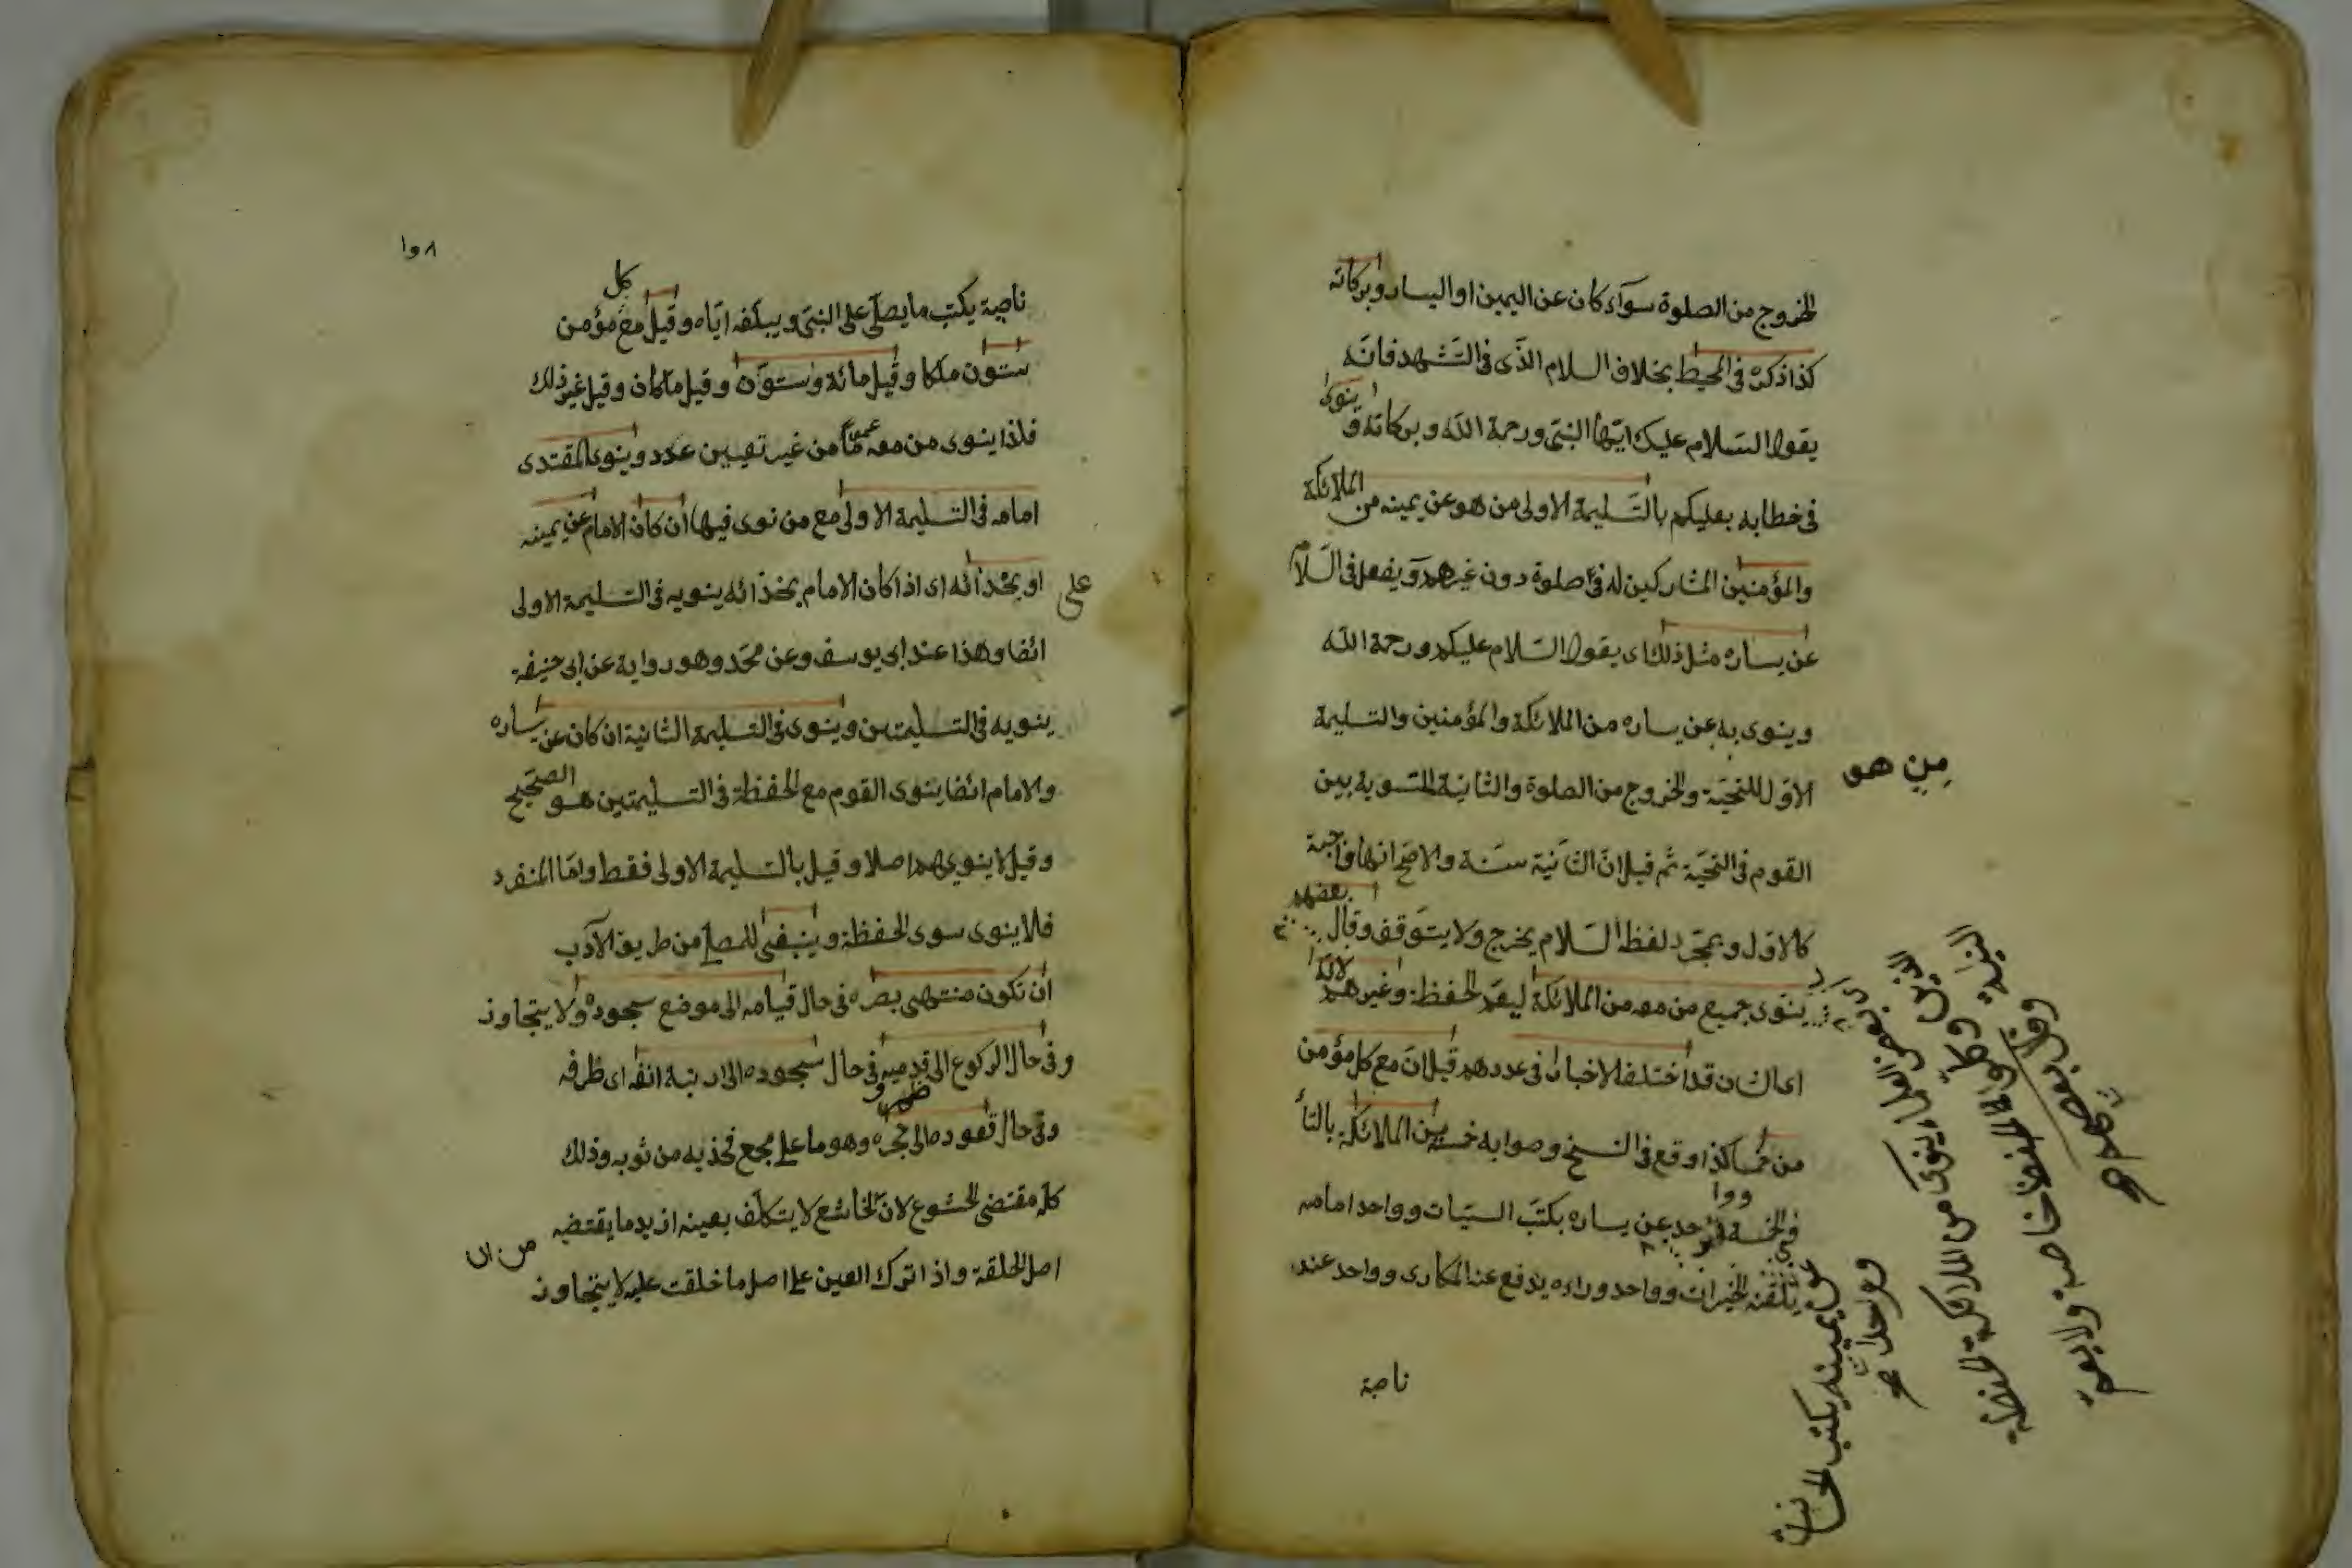 للخروج من الصلوة سوآء كان عن اليمين او اليسار وبركاته
كذا ذكره فى المحيط بخلاف السلام الذّى فى التشهد فانّه
يقول السّلام عليك ايّها النبىّ ورحمة الله وبركاته و ينوى
فى خطابه بعليكم بالتّسليمة الاولى من هو عن يمينه من الملائكة
والمؤمنين المشاركين له فى صلوة دون غيرهم ويفعل فى السّلام
عن يساره مثل ذلك اى يقول السّلام عليكم ورحمة الله
وينوى به عن يساره من الملائكة والمؤمنين والتسليمة
من هو
الاوّل للتحيّة والخروج من الصلوة والثانية للتسوية بين
القوم فى التحيّة ثم قيل انّ الثّانية سنّة والاصح انها واجبة
كالاوّل وبمجرّد لفظ السّلام يخرج ولا يتوقف وقال بعضهم
ينوى جميع من معه من الملائكة ليعمّ الحفظة وغيرهم لانّه
اى الشان قد اختلف الاخبار فى عددهم قيل انّ مع كل مؤمن
من خمسا كذا وقع فى النسخ وصوابه خمسة من الملائكة بالتاء
فى الخمسة واحد عن يساره يكتب السيّات وواحد امامه
يلقّنه الخيرات وواحد وراءه يدفع عنه المكاره وواحد عند
ناصية
بعض العلماء ينوى من الملائكة الحفظة
خاصة ولا يعمّ
وقال بعضهم
واحد
عن يمينه يكتب الحسنات
ناصية يكتب ما يصلّى على النبىّ ويبلّغه ايّاه وقيل مع كل مؤمن
ستّون ملكا وقيل مائة وستوّن وقيل ملكان وقيل غير ذلك
فلذا ينوى من معه عموما من غير تعيين عدد وينوى المقتدى
امامه فى التسليمة الاولى مع من نوى فيها ان كان الامام عن يمينه
او بحذائه اى اذا كان الامام بحذائه ينويه فى التسليمة الاولى
على
ائضا وهذا عند ابى يوسف وعن محمّد وهو رواية عن ابى حنيفة
ينويه فى التسليمتين وينوى فى التسليمة الثانية ان كان عن يساره
والامام ائضا ينوى القوم مع الحفظة فى التسليمتين هو الصحيح
وقيل لا ينويهم اصلا وقيل بالتسليمة الاولى فقط وامّا المنفرد
فلا ينوى سوى الحفظة وينبغى للمصلى من طريق الآدب
ان تكون منتهى بصره فى حال قيامه الى موضع سجوده ولا يتجاوز
وفى حال الركوع الى ظهر قدميه وفى حال سجوده الى ارنبة انفه اى طرفه
وفى حال قعوده الى حجره وهو ما على مجمع فخذيه من ثوبه وذلك
كله مقتضى الخشوع لانّ الخاشع لا يتكلّف بعينه ازيد ما يقتضيه
اصل الخلقة واذا ترك العين على اصل ما خلقت عليه لا يتجاوز